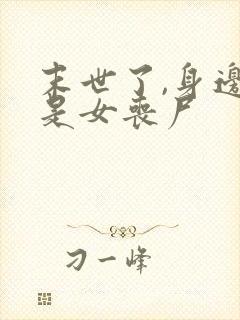 末世了,身邊
是女喪尸
刁一峰